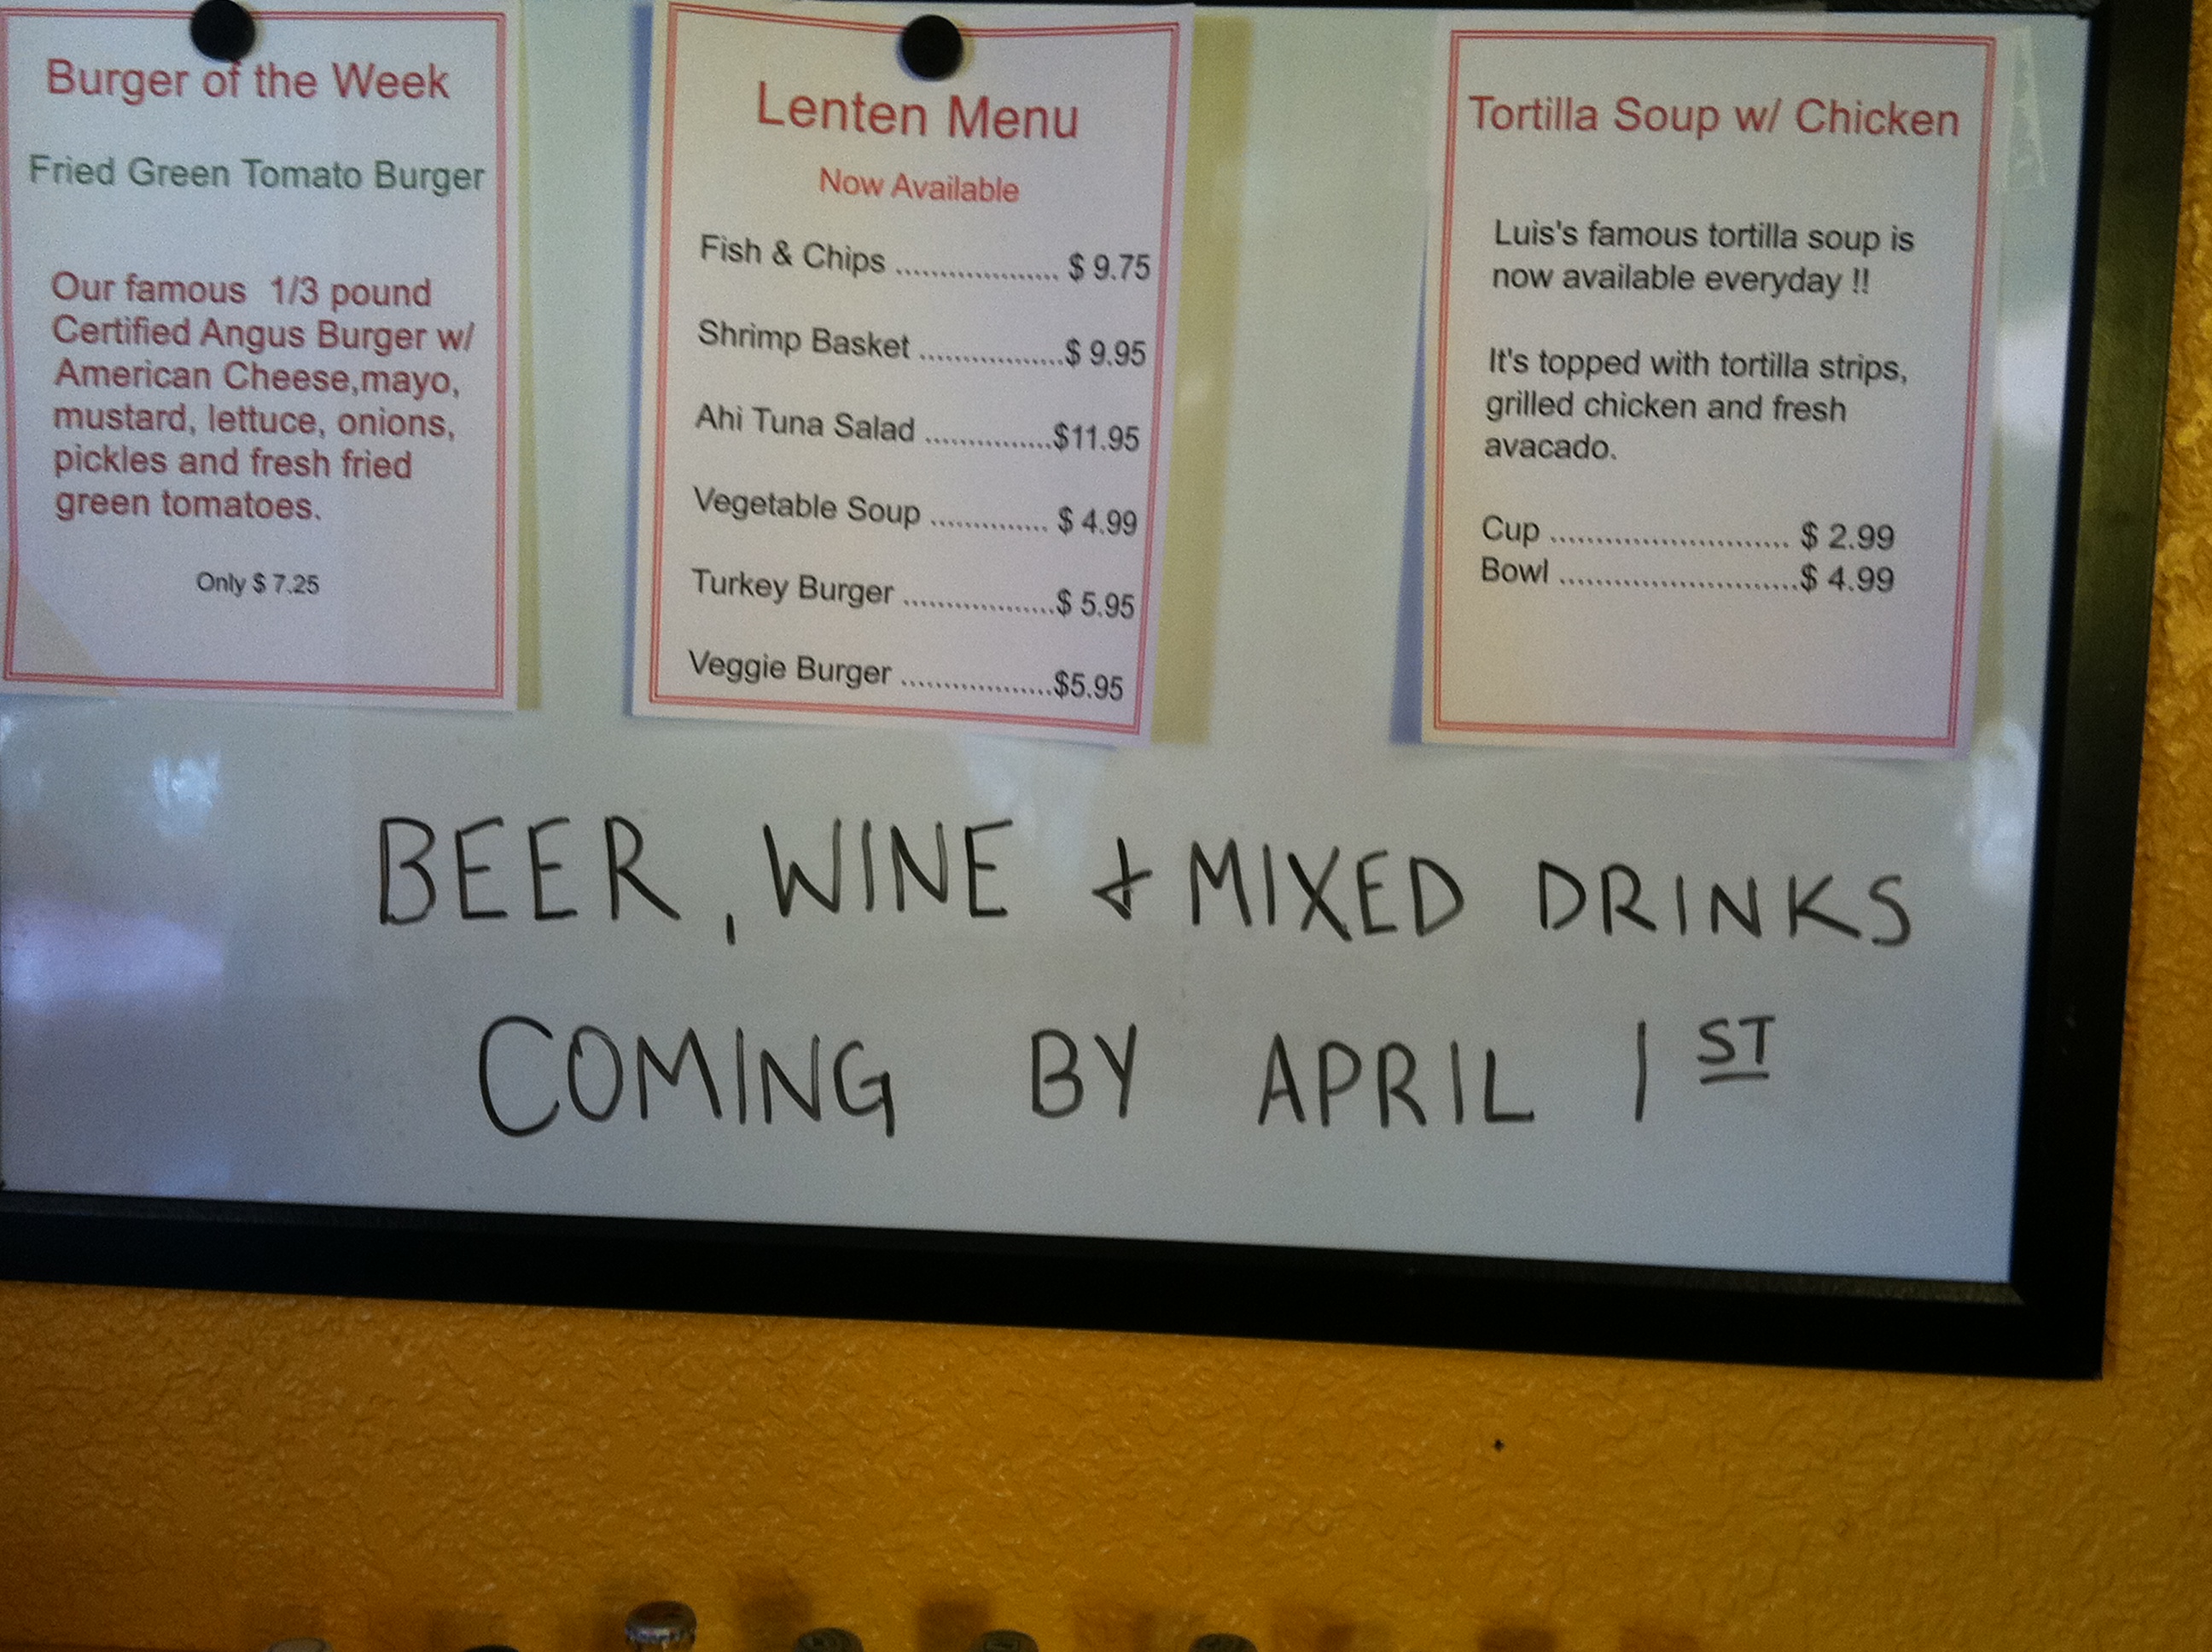 Burger of the Week
Fried Green Tomato Burger
Our famous 1/3 pound
Certified Angus Burger w/
American Cheese,mayo,
mustard, lettuce, onions,
pickles and fresh fried
green tomatoes.
Only $ 7.25
Lenten Menu
Now Available
Fish & Chips ................... $ 9.75
Shrimp Basket .................$ 9.95
Ahi Tuna Salad ...............$11.95
Vegetable Soup .............. $ 4.99
Turkey Burger ..................$ 5.95
Veggie Burger ..................$5.95
Tortilla Soup w/ Chicken
Luis's famous tortilla soup is
now available everyday !!
It's topped with tortilla strips,
grilled chicken and fresh
avacado.
Cup .......................... $ 2.99
Bowl ..........................$ 4.99
BEER, WINE & MIXED DRINKS
COMING BY APRIL 1ST